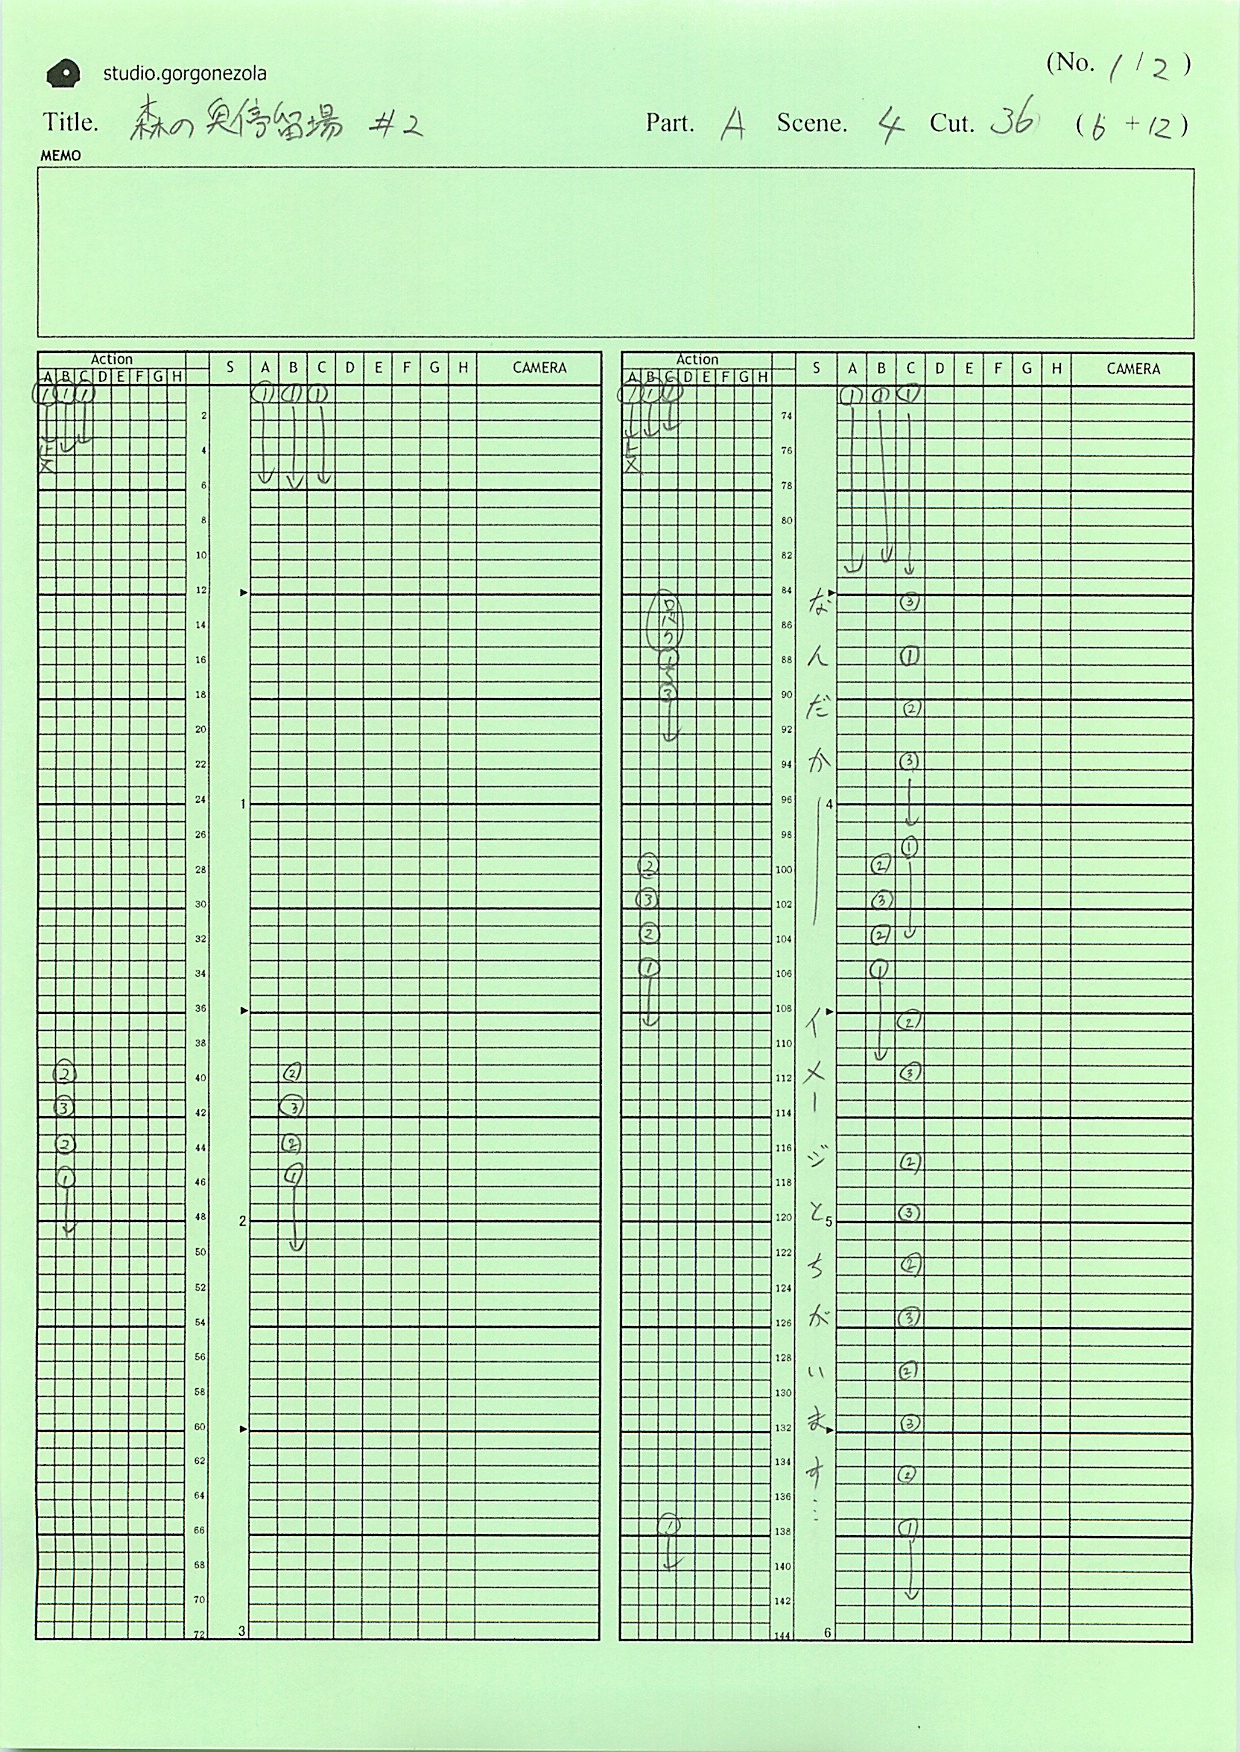 studio.gorgonezola
(No. 1/2)
Title. 森の奥停留場 #2
Part. A Scene. 4 Cut. 36 (6 + 12)
MEMO
Action
S A B C D E F G H CAMERA
A B C D E F G H
① ① ①
止
メ
① ① ①
2
4
6
8
10
12
14
16
18
20
22
24 1
26
28
30
32
34
36
38
② 40 ②
③ 42 ③
② 44 ②
① 46 ①
48 2
50
52
54
56
58
60
62
64
66
68
70
72 3
Action
S A B C D E F G H CAMERA
A B C D E F G H
① ① ①
止
メ
① ① ①
74
76
78
80
82
84 な ③
口パク
86
① 88 ん ①
〜
③ 90 だ ②
92
94 か ③
96 │ 4
98 ①
② 100 ②
③ 102 ③
② 104 ②
① 106 ①
108 イ ②
110
112 メ ③
114 ー
116 ジ ②
118
120 と 5 ③
122 ち ②
124
126 が ③
128 い ②
130
132 ま ③
134 す ②
136 …
① 138 ①
140
142
144 6